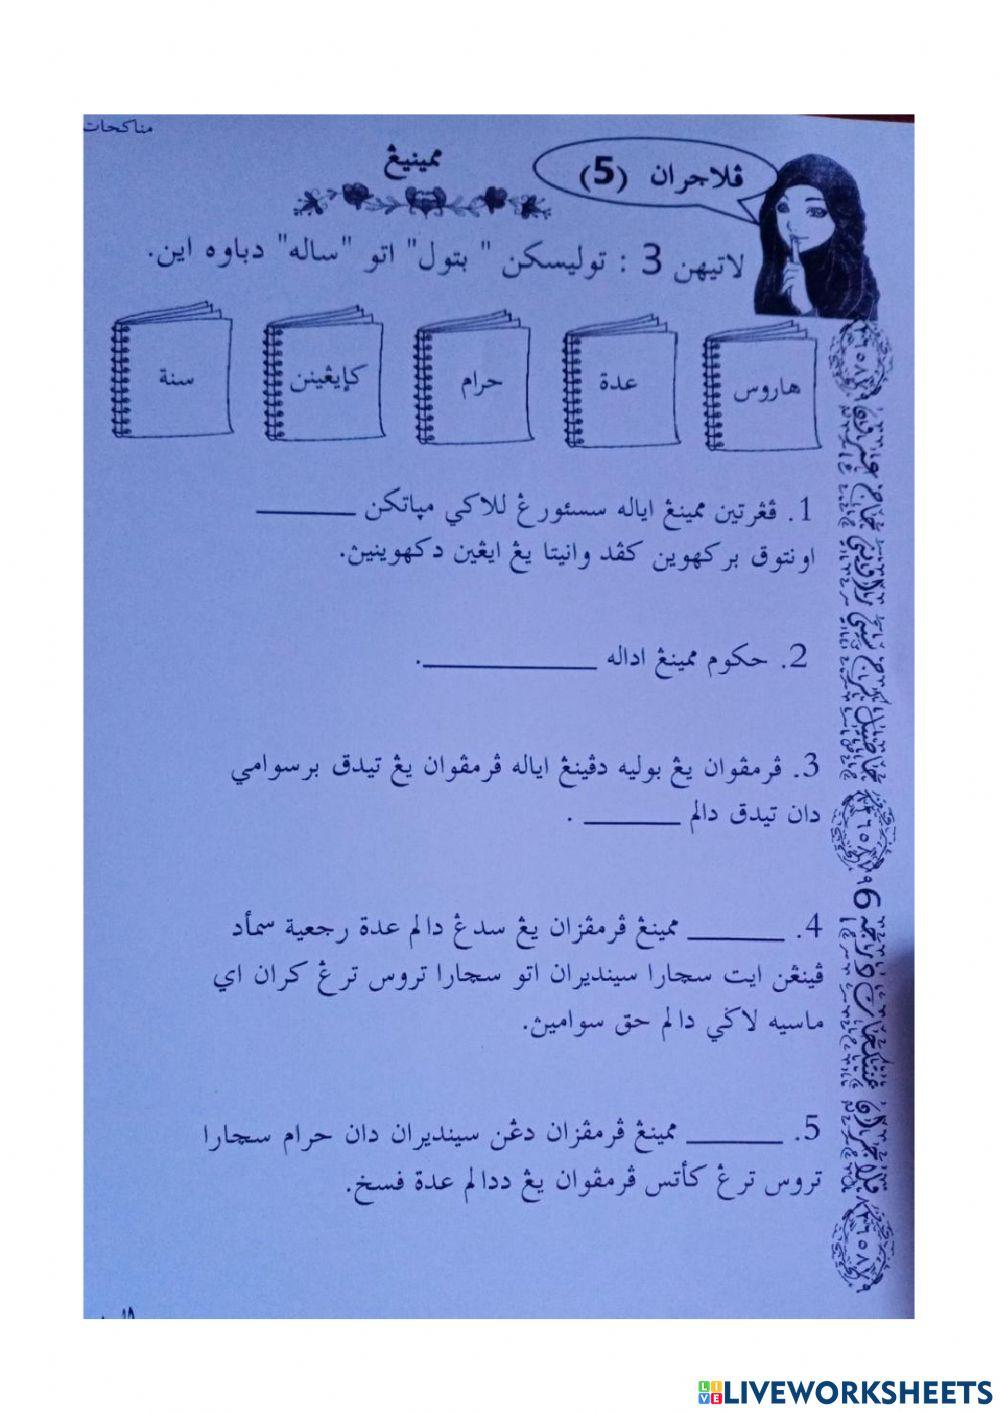 مناكحات
ڤلاجران (5)
ممينيڠ
لاتيهن 3 : توليسكن " بتول" اتو "ساله" دباوه اين.
هاروس
عدة
حرام
كإيڠينن
سنة
1. ڤڠرتين ممينڠ اياله سسئورڠ للاكي مپاتكن ________
اونتوق بركهوين كڤد وانيتا يڠ ايڠين دكهوينيڽ.
2. حكوم ممينڠ اداله ______________.
3. ڤرمڤوان يڠ بوليه دڤينڠ اياله ڤرمڤوان يڠ تيدق برسوامي
دان تيدق دالم ________ .
4. ________ ممينڠ ڤرمڤزان يڠ سدڠ دالم عدة رجعية سمأد
ڤينڠن ايت سچارا سينديران اتو سچارا تروس ترڠ كران اي
ماسيه لاݢي دالم حق سواميڽ.
5. ________ ممينڠ ڤرمڤزان دڠن سينديران دان حرام سچارا
تروس ترڠ كأتس ڤرمڤوان يڠ ددالم عدة فسخ.
6
LIVEWORKSHEETS